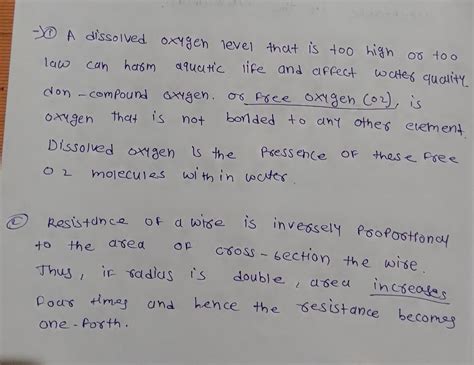 →① A dissolved oxygen level that is too high or too
law can harm aquatic life and affect water quality.
Non-compound oxygen. or free oxygen (O2), is
oxygen that is not bonded to any other element.
Dissolved oxygen is the Pressence of these free
O2 molecules within water.
② Resistance of a wire is inversely proportional
to the area of cross-section, the wire.
Thus, if radius is double, area increases
Four times and hence the resistance becomes
one-forth.